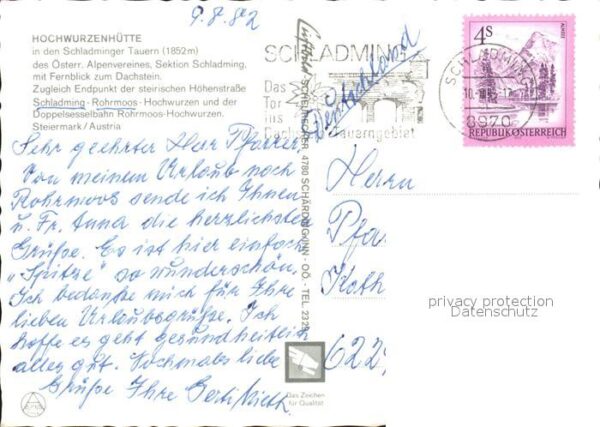 9.8.82
HOCHWURZENHÜTTE
in den Schladminger Tauern (1852m)
des Österr. Alpenvereines, Sektion Schladming,
mit Fernblick zum Dachstein.
Zugleich Endpunkt der steirischen Höhenstraße
Schladming-Rohrmoos-Hochwurzen und der
Doppelsesselbahn Rohrmoos-Hochwurzen.
Steiermark / Austria
Sehr geehrter Herr Pfarrer,
Von meinem Urlaub nach
Rohrmoos sende ich Ihnen
u. Fr. Anna die herzlichsten
Grüße. Es ist hier einfach
„Spitze" so wunderschön.
Ich bedanke mich für Ihre
lieben Urlaubsgrüße. Ich
hoffe es geht gesundheitlich
alles gut. Nochmals liebe
Grüße Ihre Gerti
SCHÄRDING/INN - OÖ. - TEL. 2325
SCHLADMING
Das
Tor
ins
Tauerngebiet
Deutschland
4S
REPUBLIK ÖSTERREICH
SCHLADMING
8970
Herrn
Pfar
Kath
622
privacy protection
Datenschutz
Das Zeichen
für Qualität